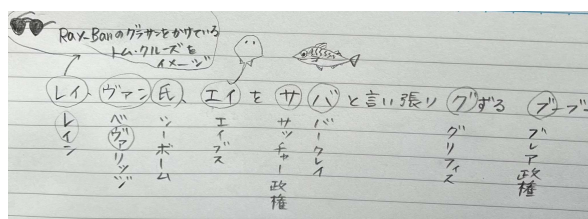 Ray-Banのグラサンをかけている
トム・クルーズを
イメージ
レイ、ヴァン氏、エイをサバと言い張りグずる ブーブー
レイン
ベヴァリッジ
シーボーム
エイブス
サッチャー政権
バークレイ
グリフィス
ブレア政権